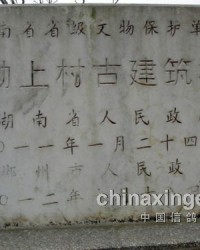 南省省级文物保护单
坳上村古建筑
湖南省人民政
〇一一年一月二十四
郴州市人民政
〇一二年
chinaxinge
中国信鸽